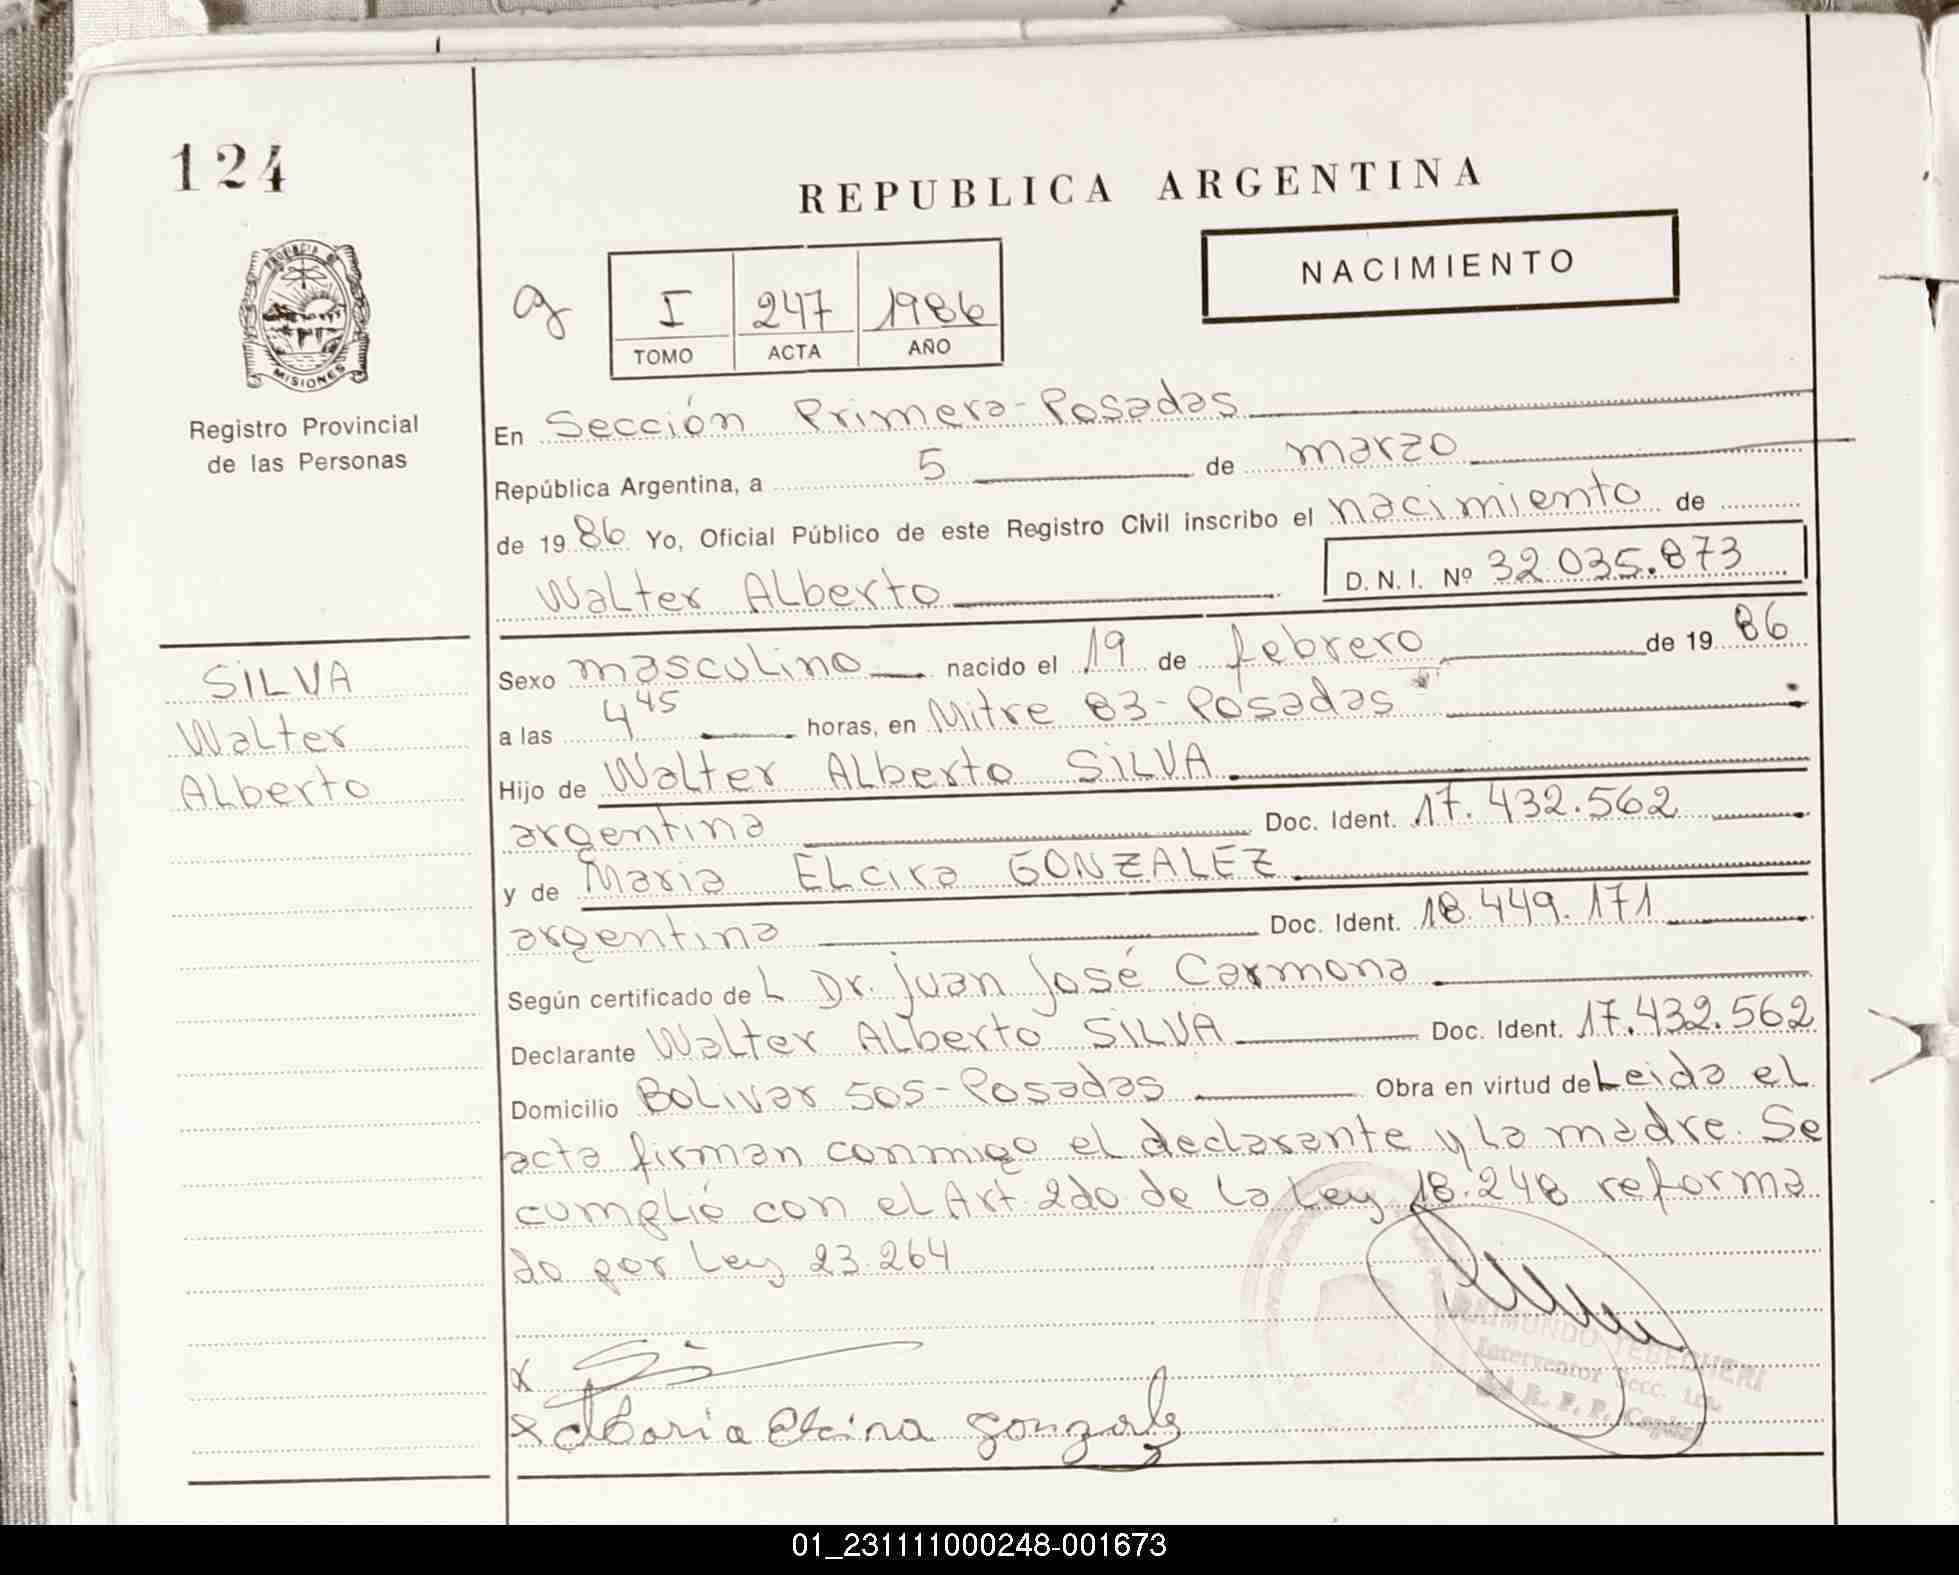 124
REPUBLICA ARGENTINA
NACIMIENTO
PROVINCIA DE
MISIONES
Registro Provincial
de las Personas
I 247 1986
TOMO ACTA AÑO
En Sección Primera - Posadas
República Argentina, a 5 de marzo
de 1986 Yo, Oficial Público de este Registro Civil inscribo el nacimiento de
Walter Alberto D. N. I. Nº 32 035.873
SILVA
Walter
Alberto
Sexo masculino nacido el 19 de febrero de 1986
a las 4 45 horas, en Mitre 83 - Posadas
Hijo de Walter Alberto SILVA
argentina Doc. Ident. 17.432.562
y de Maria Elcira GONZALEZ
argentina Doc. Ident. 18.449.171
Según certificado del Dr. Juan José Carmona
Declarante Walter Alberto SILVA Doc. Ident. 17.432.562
Domicilio Bolivar 505 - Posadas Obra en virtud de Leida el
acta firman conmigo el declarante y la madre. Se
cumplió con el Art 2do de la Ley 18.248 reforma
do por Ley 23.264
x
x Maria Elcira Gonzalez
RAIMUNDO
Interventor Secc. 1ra.
01_231111000248-001673